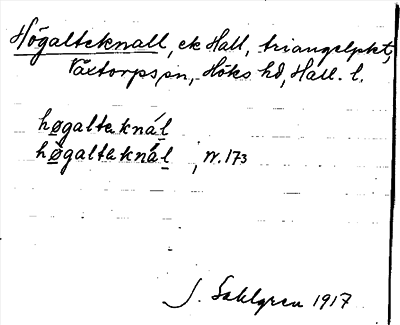 Högalteknall, ek Hall, triangelpkt,
Växtorps sn, Höks hd, Hall. l.
høgalteknál
høgaltaknál, N. 173
J. Sahlgren 1917